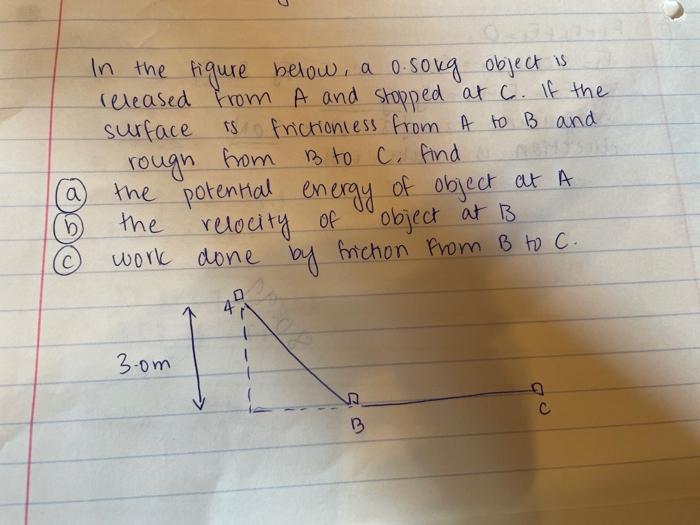 In the figure below, a 0.50kg object is
released from A and stopped at C. If the
surface is frictionless from A to B and
rough from B to C, find
(a) the potential energy of object at A
(b) the velocity of object at B
(c) work done by friction from B to C.
A
3.0m
B
C